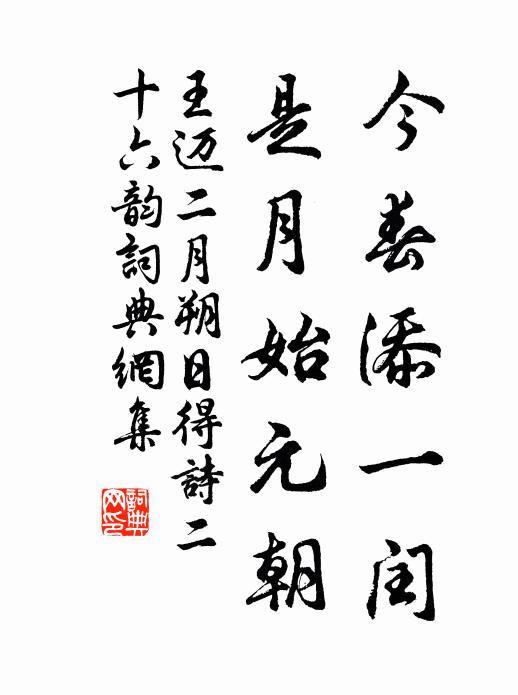 今春添一闰
是月始元朝
王迈二月朔日得詩二
十六韵詞典網集
詞典
网印